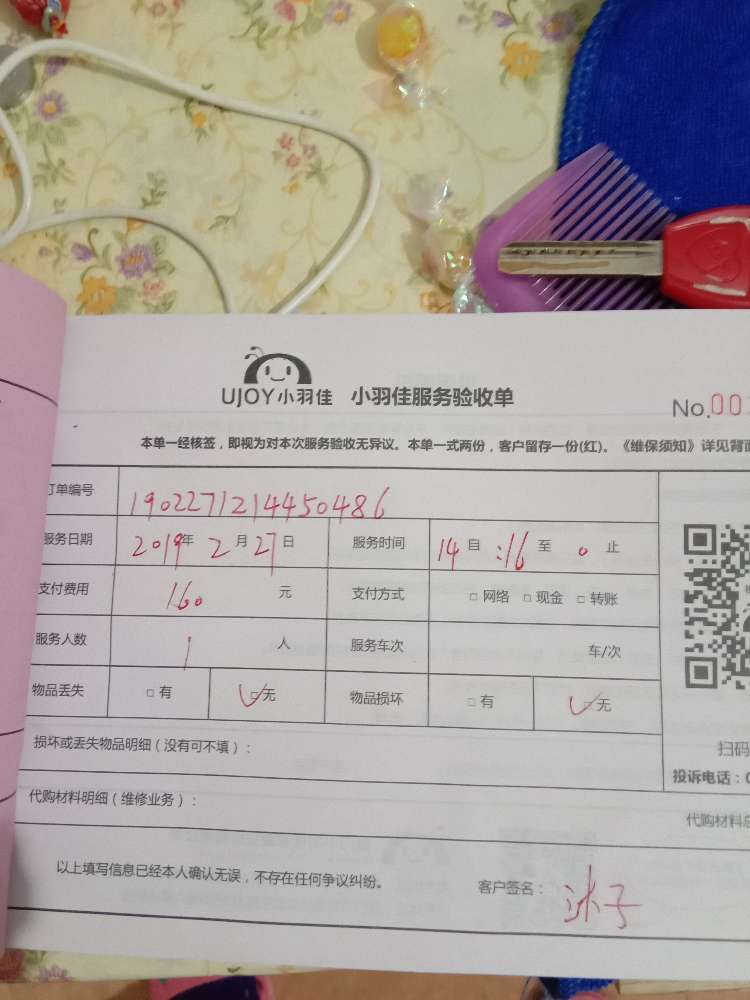 UJOY小羽佳 小羽佳服务验收单
No.00
本单一经核签，即视为对本次服务验收无异议。本单一式两份，客户留存一份(红)。《维保须知》详见背面
订单编号 1902271214450486
服务日期 2019年 2月27日 服务时间 14自:16至 0止
支付费用 160 元 支付方式 □网络 □现金 □转账
服务人数 1 人 服务车次 车/次
物品丢失 □有 □无 物品损坏 □有 □无
损坏或丢失物品明细（没有可不填）：
扫码
投诉电话：0
代购材料明细（维修业务）：
代购材料总
以上填写信息已经本人确认无误，不存在任何争议纠纷。 客户签名： 沐子